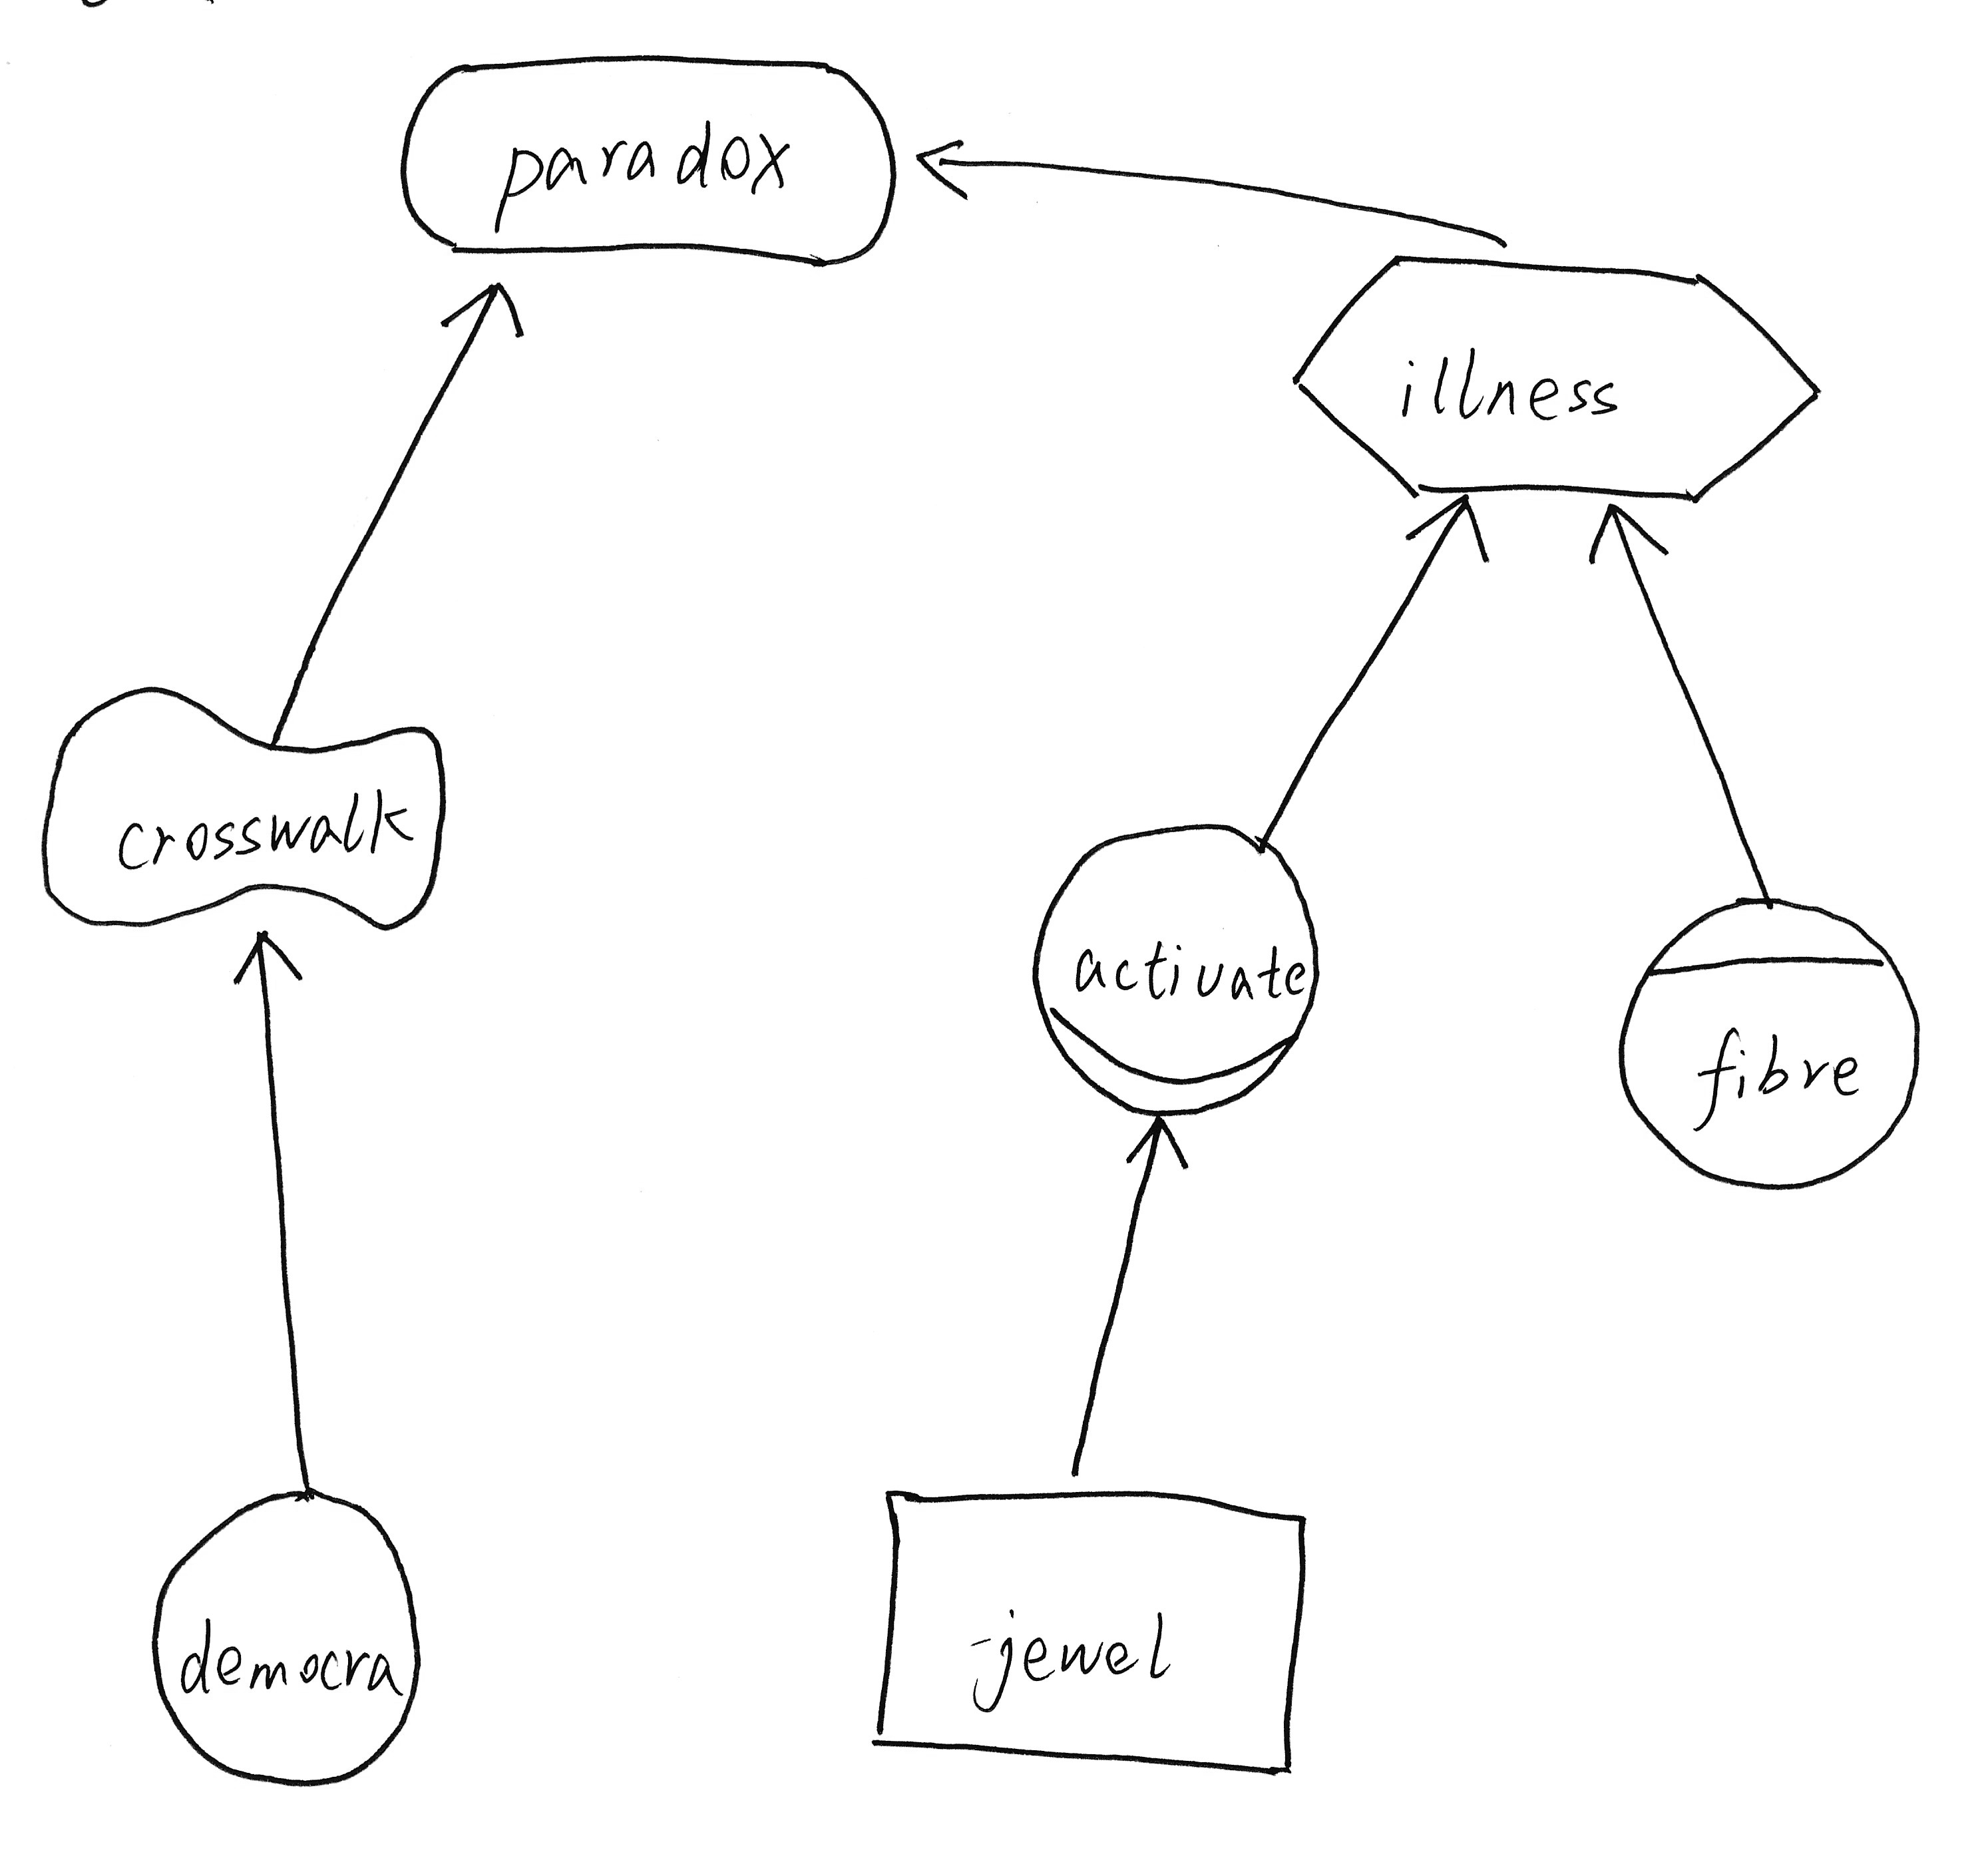 paradox
illness
crosswalk
activate
fibre
democra
jewel